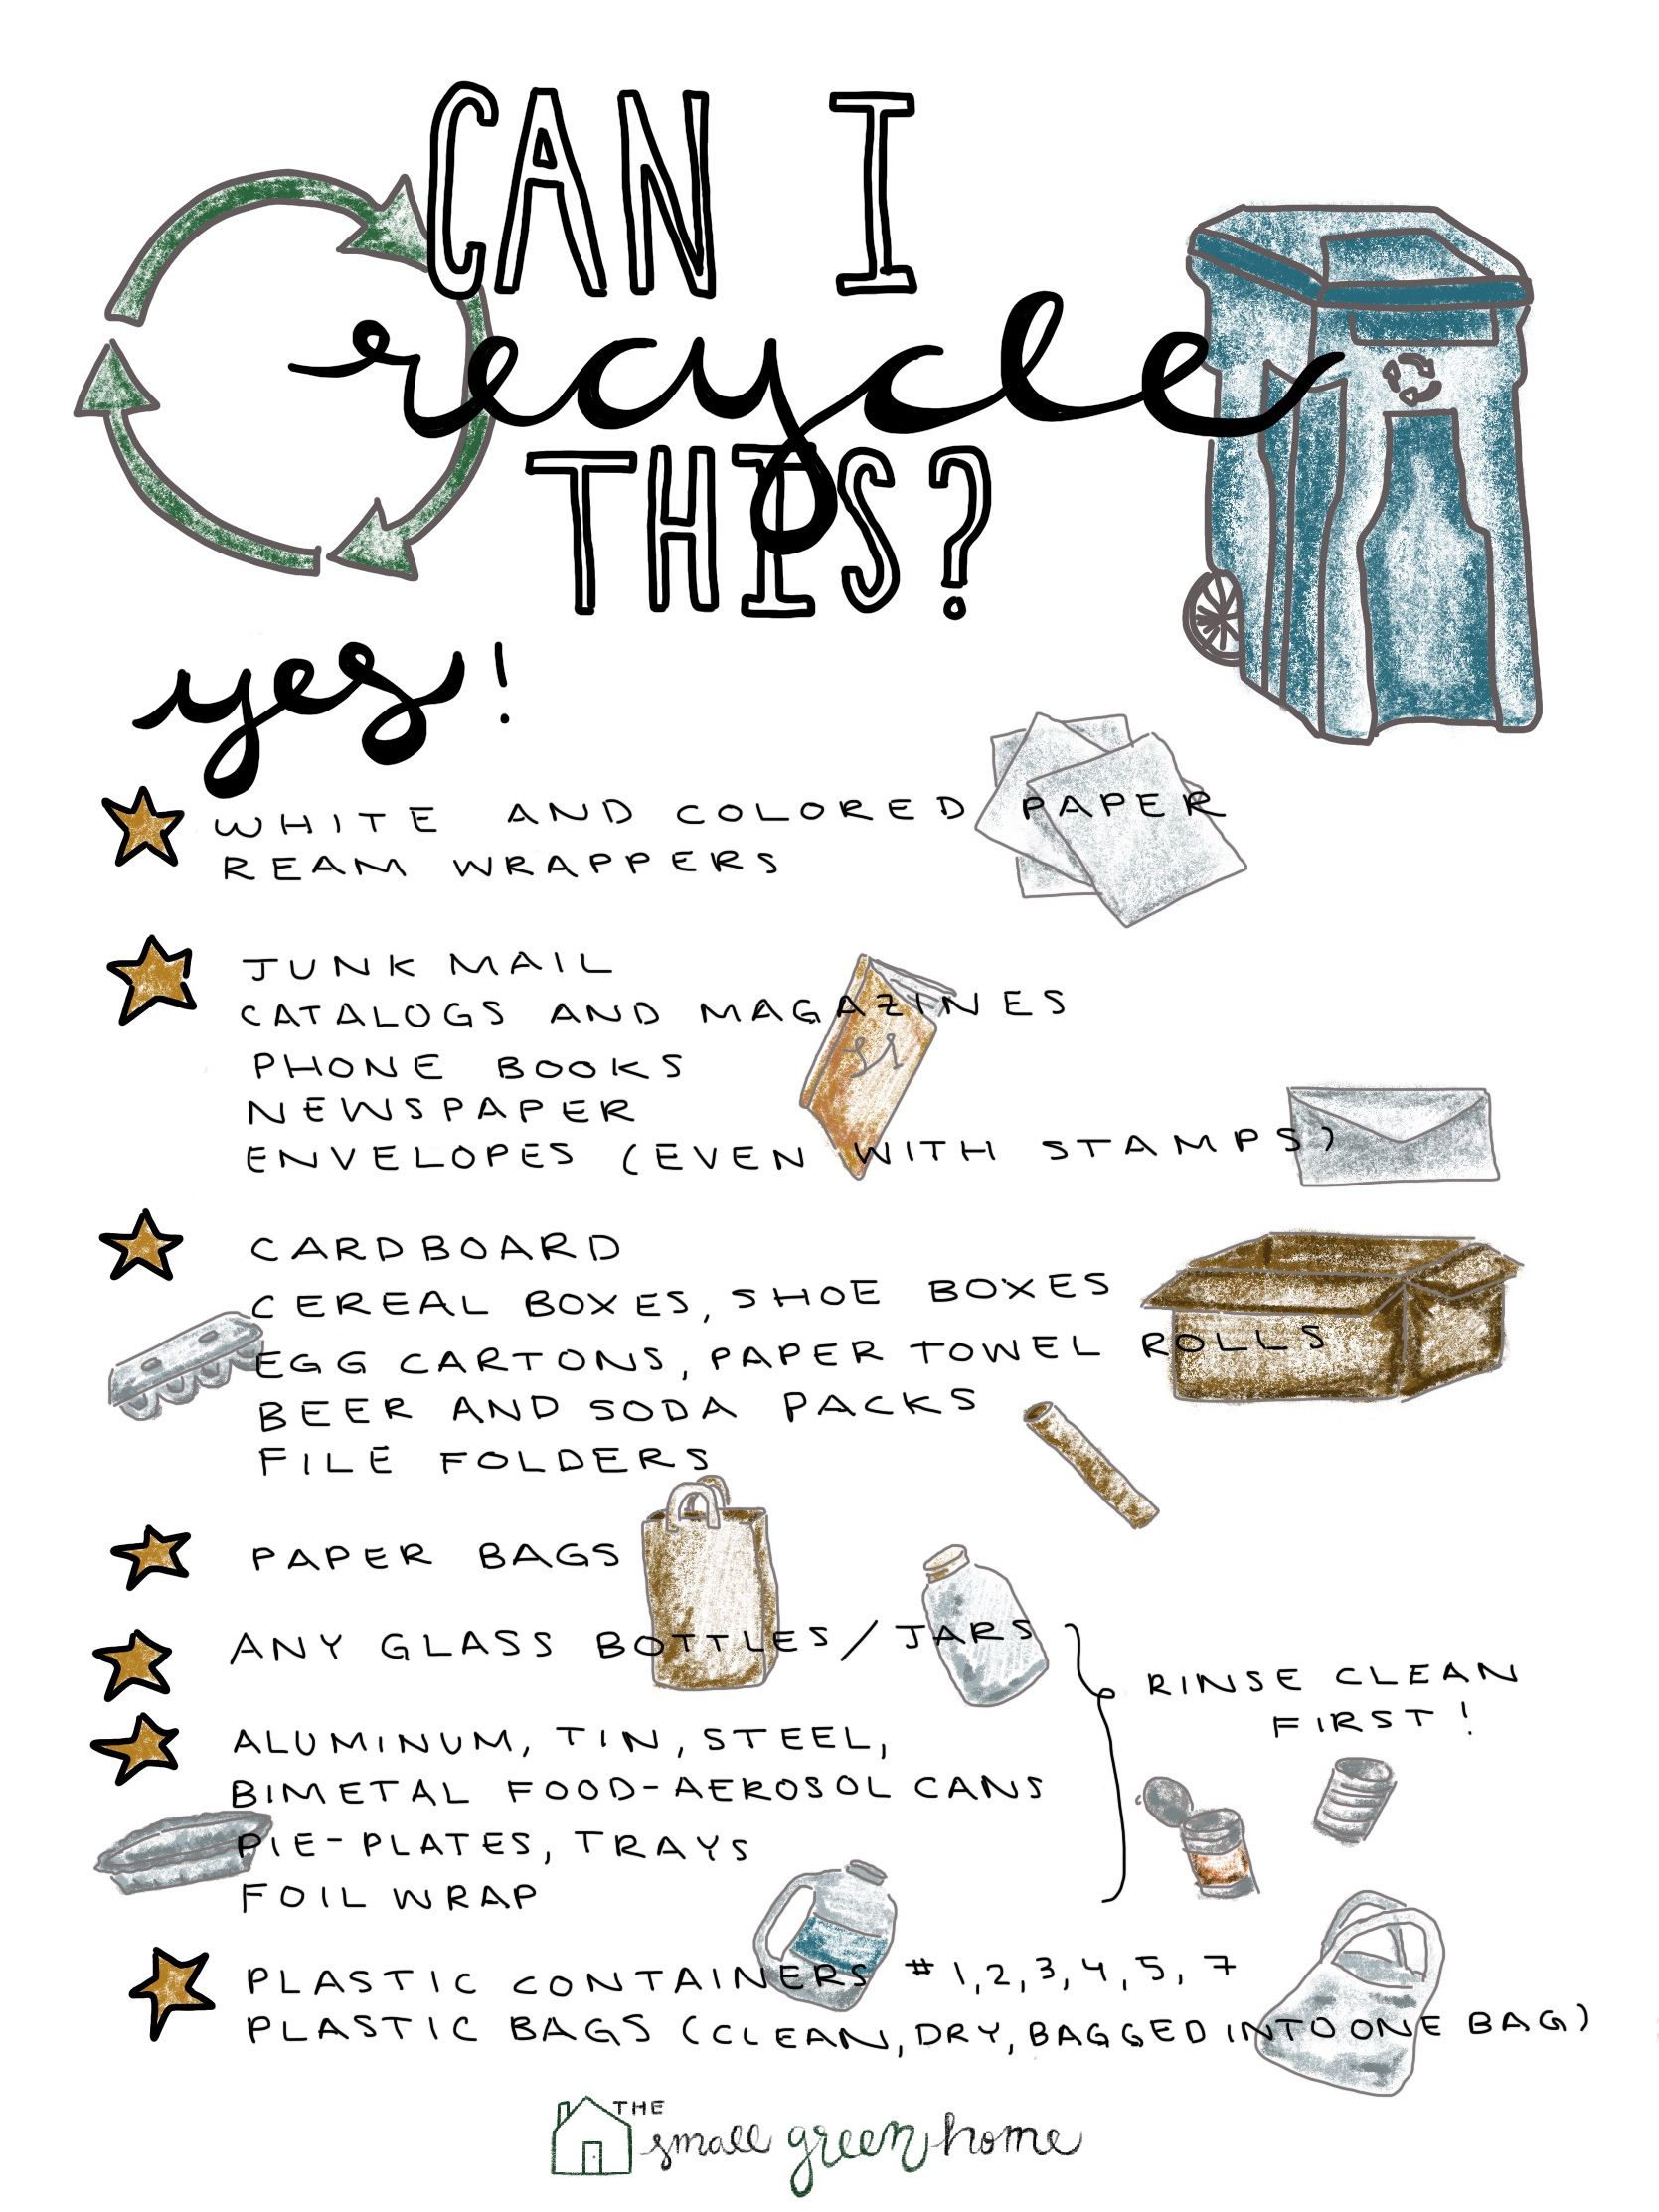 CAN I
recycle
THIS?
yes!
WHITE AND COLORED PAPER
REAM WRAPPERS
JUNK MAIL
CATALOGS AND MAGAZINES
PHONE BOOKS
NEWSPAPER
ENVELOPES (EVEN WITH STAMPS)
CARDBOARD
CEREAL BOXES, SHOE BOXES
EGG CARTONS, PAPER TOWEL ROLLS
BEER AND SODA PACKS
FILE FOLDERS
PAPER BAGS
ANY GLASS BOTTLES/JARS
RINSE CLEAN
FIRST!
ALUMINUM, TIN, STEEL,
BIMETAL FOOD-AEROSOL CANS
PIE-PLATES, TRAYS
FOIL WRAP
PLASTIC CONTAINERS #1,2,3,4,5,7
PLASTIC BAGS (CLEAN, DRY, BAGGED INTO ONE BAG)
THE
small green home